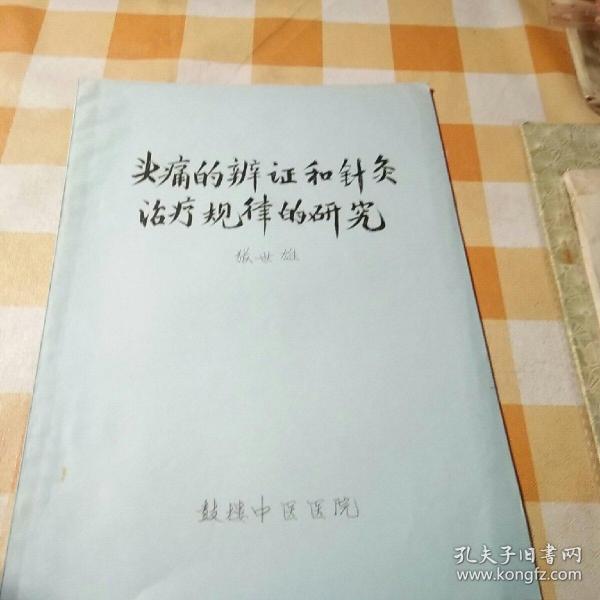 头痛的辨证和针灸
治疗规律的研究
张世雄
鼓楼中医医院
孔夫子旧书网
www.kongfz.com